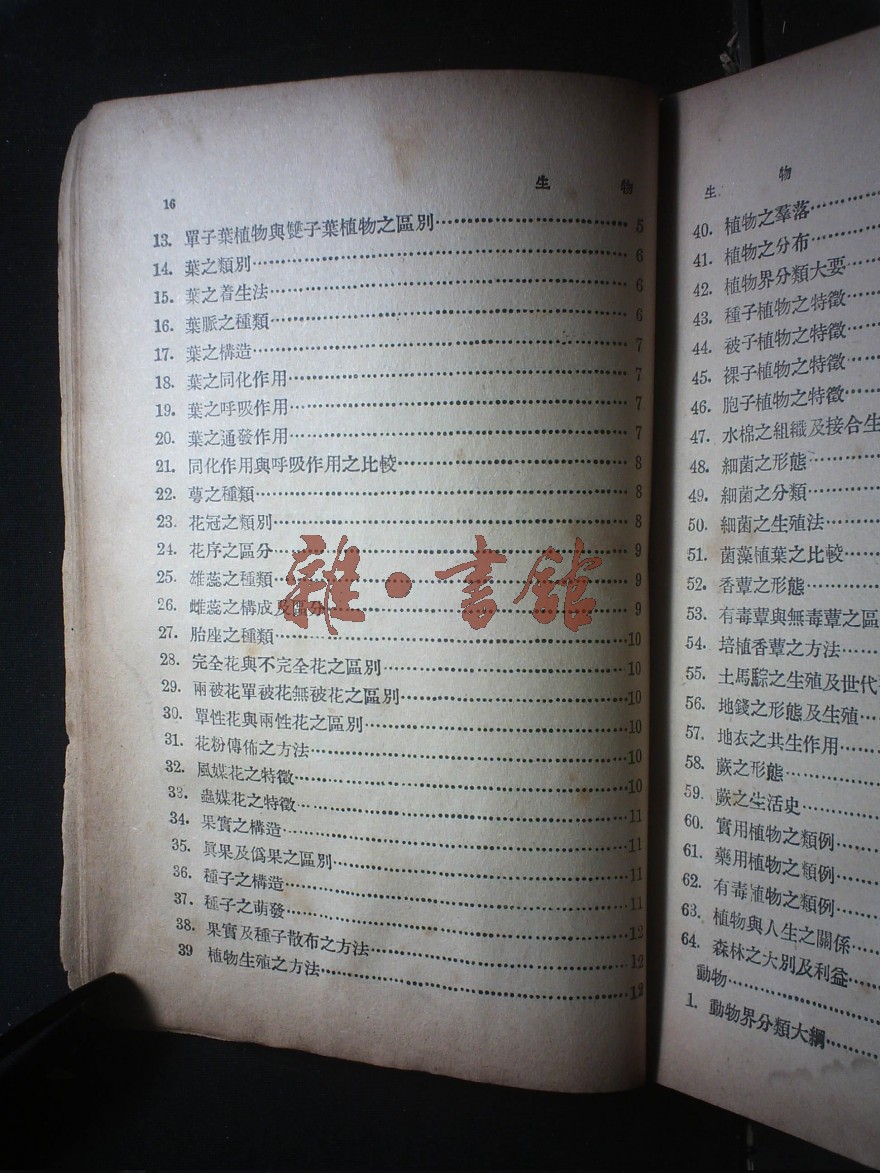 16 生物
13. 單子葉植物與雙子葉植物之區別 5
14. 葉之類別 6
15. 葉之着生法 6
16. 葉脈之種類 6
17. 葉之構造 7
18. 葉之同化作用 7
19. 葉之呼吸作用 7
20. 葉之通發作用 7
21. 同化作用與呼吸作用之比較 8
22. 萼之種類 8
23. 花冠之類別 8
24. 花序之區分 9
25. 雄蕊之種類 9
26. 雌蕊之構成及區分 9
27. 胎座之種類 10
28. 完全花與不完全花之區別 10
29. 兩被花單被花無被花之區別 10
30. 單性花與兩性花之區別 10
31. 花粉傳佈之方法 10
32. 風媒花之特徵 10
33. 蟲媒花之特徵 11
34. 果實之構造 11
35. 眞果及僞果之區別 11
36. 種子之構造 11
37. 種子之萌發 12
38. 果實及種子散布之方法 12
39 植物生殖之方法 12
雜·書館
生物
40. 植物之羣落
41. 植物之分布
42. 植物界分類大要
43. 種子植物之特徵
44. 被子植物之特徵
45. 裸子植物之特徵
46. 胞子植物之特徵
47. 水棉之組織及接合生
48. 細菌之形態
49. 細菌之分類
50. 細菌之生殖法
51. 菌藻植葉之比較
52. 香蕈之形態
53. 有毒蕈與無毒蕈之區
54. 培植香蕈之方法
55. 土馬騌之生殖及世代
56. 地錢之形態及生殖
57. 地衣之共生作用
58. 蕨之形態
59. 蕨之生活史
60. 實用植物之類例
61. 藥用植物之類例
62. 有毒植物之類例
63. 植物與人生之關係
64. 森林之大別及利益
動物
1. 動物界分類大綱